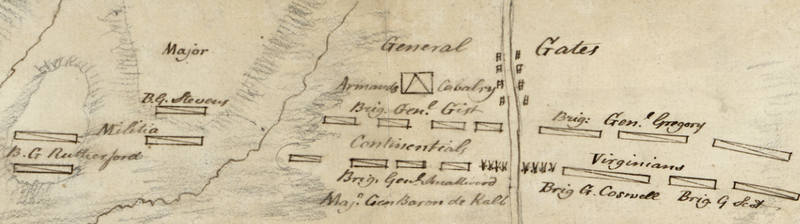 Major General Gates
Armands Cavalry
B.G. Stevens
Brig. Genl. Gist
Brig: Genl. Gregory
Militia
Continentals
B.G Rutherford
Virginians
Brig. Genl. Smallwood
Brig G. Coswell
Brig G Scot
Majr. Gen Baron de Kalb